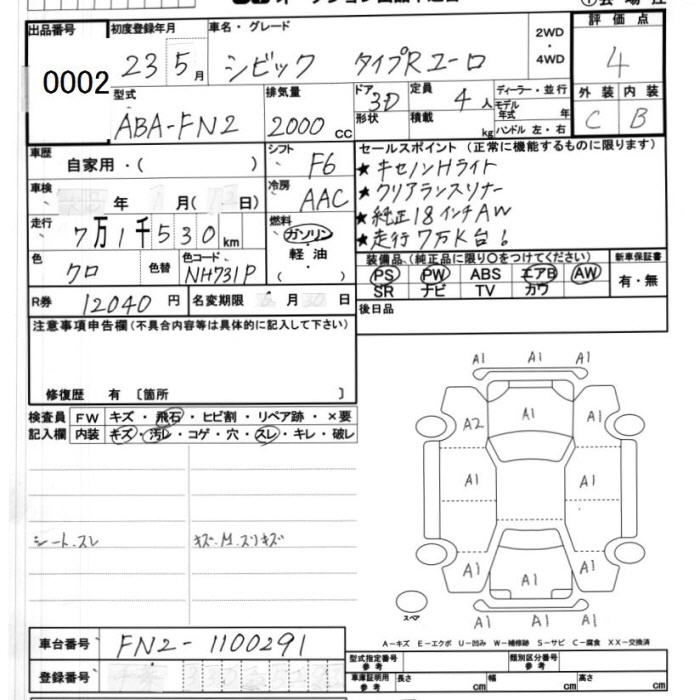 出品番号 初度登録年月 車名・グレード 2WD ・ 4WD 評価点
0002 23 5月 シビック タイプRユーロ 4
型式 排気量 ドア 定員 ディーラー・並行 外装 内装
ABA-FN2 2000cc 3D 4人 モデル年式 年 C B
形状 積載 kg ハンドル 左・右
車歴 自家用・( ) シフト F6 セールスポイント (正常に機能するものに限ります)
★キセノンHライト
車検 年 月 日) 冷房 AAC ★クリアランスソナー
★純正18インチAW
走行 7万1千530km 燃料 ガソリン・軽油・( ) ★走行7万K台!
色 クロ 色替 色コード NH731P 装備品(純正品に限り〇をつけてください) 新車保証書
PS PW ABS エアB AW 有・無
SR ナビ TV カワ
R券 12040円 名変期限 月 日 後日品
注意事項申告欄(不具合内容等は具体的に記入して下さい)
修復歴 有 〔箇所 〕
検査員 FW キズ・飛石・ヒビ割・リペア跡・×要
記入欄 内装 キズ・汚レ・コゲ・穴・スレ・キレ・破レ
シート.スレ キズ.M.スリキズ
A1 A1 A1
A2 A1 A1
A1 A1
A1 A1 A1
A1 A1 A1
スペア
A-キズ E-エクボ U-凹み W-補修跡 S-サビ C-腐食 XX-交換済
車台番号 FN2-1100291
型式指定番号 参考 類別区分番号 参考
登録番号 車庫証明用 参考 長さ cm 幅 cm 高さ cm